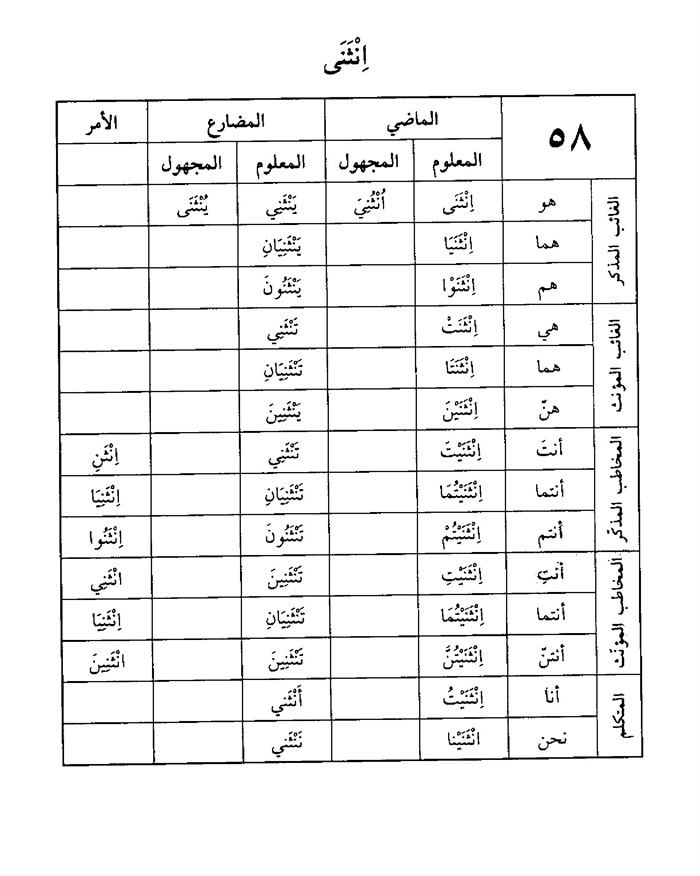 اِنْثَنَى
٥٨ الماضي المضارع الأمر
المعلوم المجهول المعلوم المجهول
الغائب المذكر
هو اِنْثَنَى اُنْثُنِيَ يَنْثَنِي يُنْثَنَى
هما اِنْثَنَيَا يَنْثَنِيَانِ
هم اِنْثَنَوْا يَنْثَنُونَ
الغائب المؤنث
هي اِنْثَنَتْ تَنْثَنِي
هما اِنْثَنَتَا تَنْثَنِيَانِ
هنّ اِنْثَنَيْنَ يَنْثَنِينَ
المخاطب المذكر
أنتَ اِنْثَنَيْتَ تَنْثَنِي اِنْثَنِ
أنتما اِنْثَنَيْتُمَا تَنْثَنِيَانِ اِنْثَنِيَا
أنتم اِنْثَنَيْتُمْ تَنْثَنُونَ اِنْثَنُوا
المخاطب المؤنّث
أنتِ اِنْثَنَيْتِ تَنْثَنِينَ انْثَنِي
أنتما اِنْثَنَيْتُمَا تَنْثَنِيَانِ اِنْثَنِيَا
أنتنّ اِنْثَنَيْتُنَّ تَنْثَنِينَ انْثَنِينَ
المتكلم
أنا اِنْثَنَيْتُ أَنْثَني
نحن انْثَنَيْنا نَنْثَني